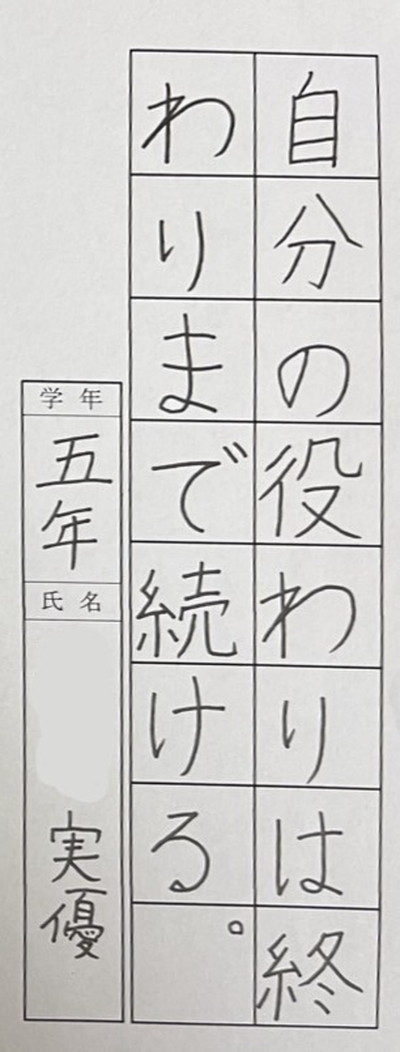 自分の役わりは終
わりまで続ける。
学年
五年
氏名
実優